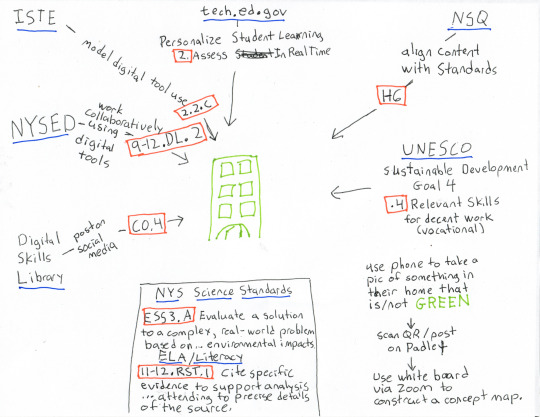 ISTE
model digital tool use
2.2.c
tech.ed.gov
Personalize Student Learning
2. Assess Student In Real Time
NSQ
align content
with Standards
H6
NYSED
work
collaboratively
using
digital
tools
9-12.DL.2
UNESCO
Sustainable Development
Goal 4
.4 Relevant Skills
for decent work
(vocational)
Digital
Skills
Library
post on
social
media
CO.4
use phone to take a
pic of something in
their home that
is/not GREEN
scan QR/post
on Padlet
Use white board
via Zoom to
construct a concept map.
NYS Science Standards
ESS3.A Evaluate a solution
to a complex, real-world problem
based on... environmental impacts.
ELA/Literacy
11-12.RST.1 Cite specific
evidence to support analysis
...attending to precise details
of the source.